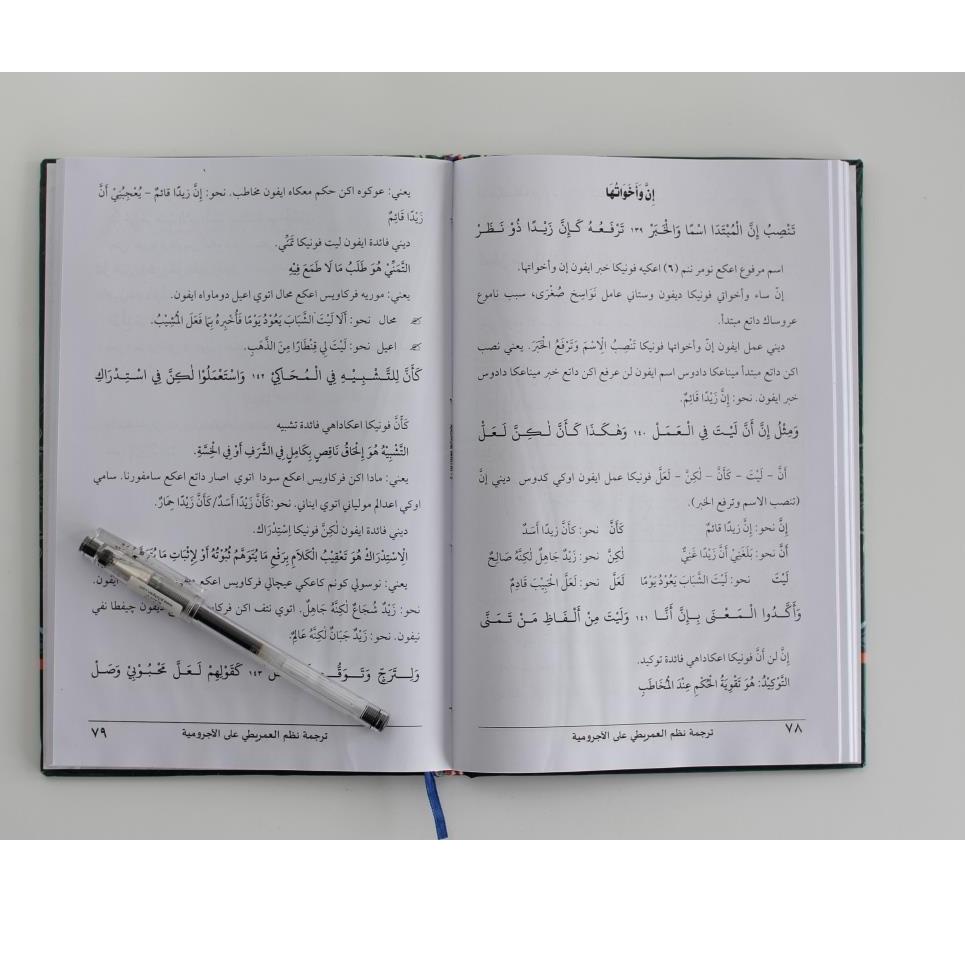 إِنَّ وَأَخَوَاتُهَا
تَنْصِبُ إِنَّ الْمُبْتَدَا اسْمًا وَالْخَبَرْ ١٣٩ تَرْفَعُهُ كَإِنَّ زَيْدًا ذُوْ نَظَرْ
اسم مرفوع اعكع نومر ننم (٦) اعكيه فونيكا خبر ايفون إن وأخواتها.
إنّ ساء وأخواتي فونيكا ديفون وستاني عامل نَوَاسِخ صُغْرَى، سبب ناموع
عروساك داتع مبتدأ.
ديني عمل ايفون إنّ وأخواتها فونيكا تَنْصِبُ الِاسْمَ وَتَرْفَعُ الْخَبَرَ. يعني نصب
اكن داتع مبتدأ ميناعكا دادوس اسم ايفون لن عرفع اكن داتع خبر ميناعكا دادوس
خبر ايفون. نحو: إِنَّ زَيْدًا قَائِمٌ.
وَمِثْلُ إِنَّ أَنَّ لَيْتَ فِي الْعَمَلْ ١٤٠ وَهٰكَذَا كَأَنَّ لٰكِنَّ لَعَلّْ
أَنَّ – لَيْتَ – كَأَنَّ – لٰكِنَّ – لَعَلَّ فونيكا عمل ايفون اوكي كدوس ديني إنّ
(تنصب الاسم وترفع الخبر).
إِنَّ نحو: إِنَّ زيدًا قائمٌ كَأَنَّ نحو: كأنَّ زيدًا أَسَدٌ
أَنَّ نحو: بَلَغَنِيْ أَنَّ زَيْدًا غَنِيٌّ لٰكِنَّ نحو: زَيْدٌ جَاهِلٌ لٰكِنَّهُ صَالِحٌ
لَيْتَ نحو: لَيْتَ الشَّبَابَ يَعُوْدُ يَوْمًا لَعَلَّ نحو: لَعَلَّ الْحَبِيْبَ قَادِمٌ
وَأَكَّدُوا الْمَعْنَى بِإِنَّ أَنَّا ١٤١ وَلَيْتَ مِنْ أَلْفَاظِ مَنْ تَمَنَّى
إِنَّ لن أَنَّ فونيكا اعكاداهي فائدة توكيد.
التَّوْكِيْدُ: هُوَ تَقْوِيَةُ الْحُكْمِ عِنْدَ الْمُخَاطَبِ
٧٨ ترجمة نظم العمريطي على الآجرومية
يعني: عوكوه اكن حكم معكاه ايفون مخاطب. نحو: إِنَّ زيدًا قائمٌ – يُعْجِبُنِيْ أَنَّ
زَيْدًا قَائِمٌ
ديني فائدة ايفون ليت فونيكا تَمَنِّي.
التَّمَنِّيْ هُوَ طَلَبُ مَا لَا طَمَعَ فِيْهِ
يعني: موريه فركاويس اعكع محال اتوي اعيل دوماواه ايفون.
محال نحو: أَلَا لَيْتَ الشَّبَابَ يَعُوْدُ يَوْمًا فَأُخْبِرهُ بِمَا فَعَلَ الْمُشِيْبُ.
اعيل نحو: لَيْتَ لِي قِنْطَارًا مِنَ الذَّهَبِ.
كَأَنَّ لِلتَّشْبِيْهِ فِي الْمُحَاكِيْ ١٤٢ وَاسْتَعْمَلُوْا لٰكِنَّ فِي اسْتِدْرَاكِ
كَأَنَّ فونيكا اعكاداهي فائدة تشبيه
التَّشْبِيْهُ هُوَ إِلْحَاقُ نَاقِصٍ بِكَامِلٍ فِي الشَّرَفِ أَوْ فِي الْخِسَّةِ.
يعني: مادا اكن فركاويس اعكع سودا اتوي اصار داتع اعكع سامفورنا. سامي
اوكي اعدالم مولياني اتوي ايناني. نحو: كَأَنَّ زَيْدًا أَسَدٌ/كَأَنَّ زَيْدًا حِمَارٌ.
ديني فائدة ايفون لٰكِنَّ فونيكا اِسْتِدْرَاك.
الِاسْتِدْرَاكُ هُوَ تَعْقِيْبُ الْكَلَامِ بِرَفْعِ مَا يُتَوَهَّمُ ثُبُوْتُهُ أَوْ لِإِثْبَاتِ مَا
يعني: نوسولي كونم كاعكي عيچالي فركاويس اعكع ايفون.
نحو: زَيْدٌ شُجَاعٌ لٰكِنَّهُ جَاهِلٌ. اتوي نتف اكن ديفون چيفطا نفي
نيفون. نحو: زَيْدٌ جَبَانٌ لٰكِنَّهُ عَالِمٌ.
وَلِتَرَجٍّ وَتَوَقُّ ١٤٣ كَقَوْلِهِمْ لَعَلَّ مَحْبُوْبِيْ وَصَلْ
ترجمة نظم العمريطي على الآجرومية ٧٩